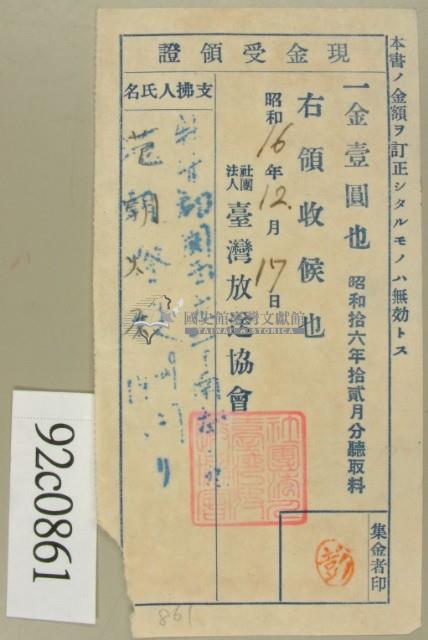 本書ノ金額ヲ訂正シタルモノハ無効トス
現金受領證
一金壹圓也 昭和拾六年拾貳月分聽取料
右領收候也
昭和16年12月17日
社團法人臺灣放送協會
支拂人氏名
范朝燈
集金者印
國史館臺灣文獻館
TAIWAN HISTORICA
92c0861
861